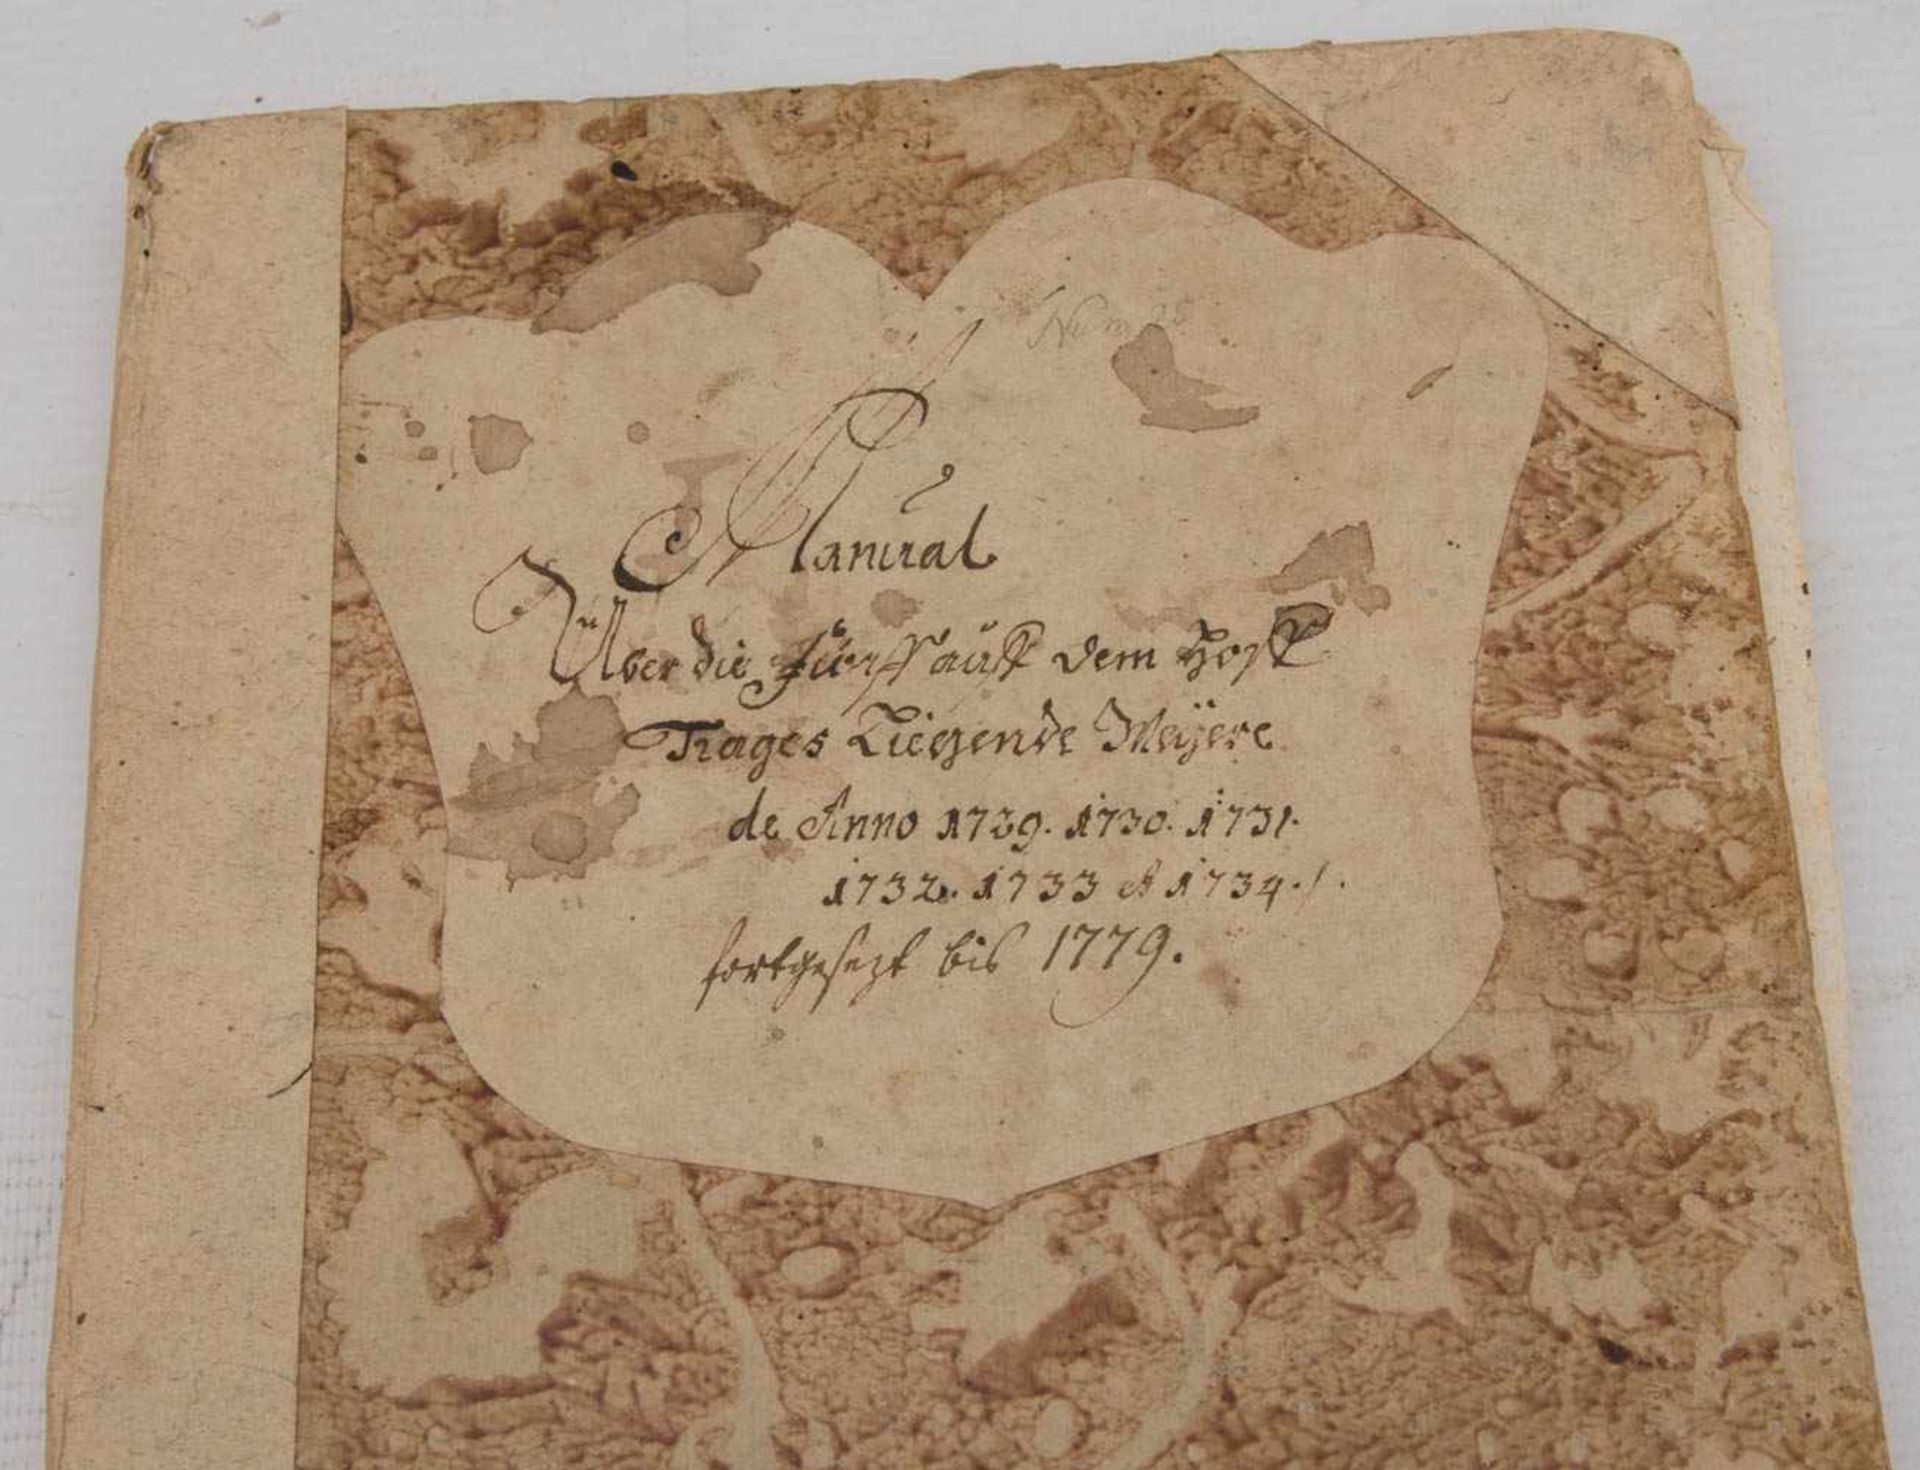 Manual
Über die fünff auff dem Hoff
Trages Liegende Meÿere
de Anno 1729. 1730. 1731.
1732. 1733 et 1734./.
fortgesezt bis 1779.